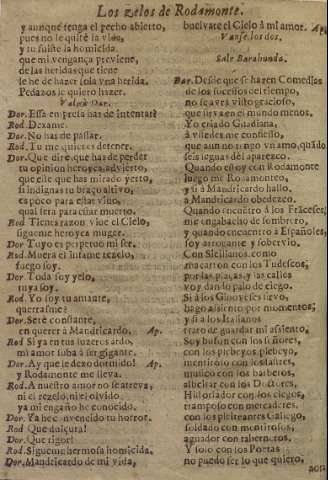 Los zelos de Rodamonte.
y aunque tenga el pecho abierto,
pues no le quitè la vida,
y tu fuiste la homicida
que mi vengança previene,
de las heridas que tiene
le he de hazer sola vna herida.
Pedaços le quiero hazer.
Valele Dor.
Dor. Essa empresa has de intentar?
Rod. Dexame.
Dor. No has de passar.
Rod. Tu me quieres detener.
Dor. Que dirè, que has de perder
tu opinion heroyca, advierto,
que este que has mirado yerto,
si indignas tu braço altivo,
es poco para estar vivo,
qual serà para estar muerto.
Rod. Tienes razon vive el Cielo,
sigueme heroyca muger.
Dor. Tuyo es perpetuo mi ser.
Rod. Muera el infame rezelo,
fuego soy.
Dor. Toda soy yelo,
tuya soy.
Rod. Yo soy tu amante,
querrasme?
Dor. Serè constante,
en querer à Mandricardo. Ap.
Rod. Si ya en tus luzeres ardo,
mi amor suba à ser gigante.
Dor. Ay que le dexo dormido! Ap.
y Rodamonte me lleva.
Rod. A nuestro amor no se atreva,
ni el rezelo, ni el olvido
ya mi engaño he conocido.
Dor. Ya he convencido tu horror.
Rod. Que dulçura!
Dor. Que rigor!
Rod. Sigueme hermosa homicida.
Dor. Mandricardo de mi vida,
buelvate el Cielo à mi amor. Ap.
Vanse los dos.
Sale Barahunda.
Bar. Desde que se hazen Comedias
de los sucessos del tiempo,
no se avrà visto gracioso,
que sirva en el mundo menos.
Yo criado
à vstedes me confiesso,
que aun no tengo vn amo, quando
seis leguas del aparezco.
Quando estoy con Rodamonte
luego me Rodamonteo,
y si à Mandricardo hallo,
à Mandricardo obedezco.
Quando encuentro à los Franceses,
me engabacho de sombrero,
y quando encuentro à Españoles,
soy arrogante y sobervio.
Con Sicilianos como
macarron con los Tudescos,
por las plaças, y las calles
voy dando palo de ciego.
Si à los Ginoveses tievo,
hago assiento por momentos;
y si à los Italianos
trato de guardar mi assiento,
Soy bufon con los señores,
con los plebeyos plebeyo,
mentiroso con los sastres,
musico con los barberos,
albeitar con los Doctores,
Historiador con los ciegos,
tramposo con mercaderes,
con los pleiteantes Gallego,
soldado con mentirosos,
aguador con taberneros.
Y solo con los Poetas
no puedo ser lo que quiero,